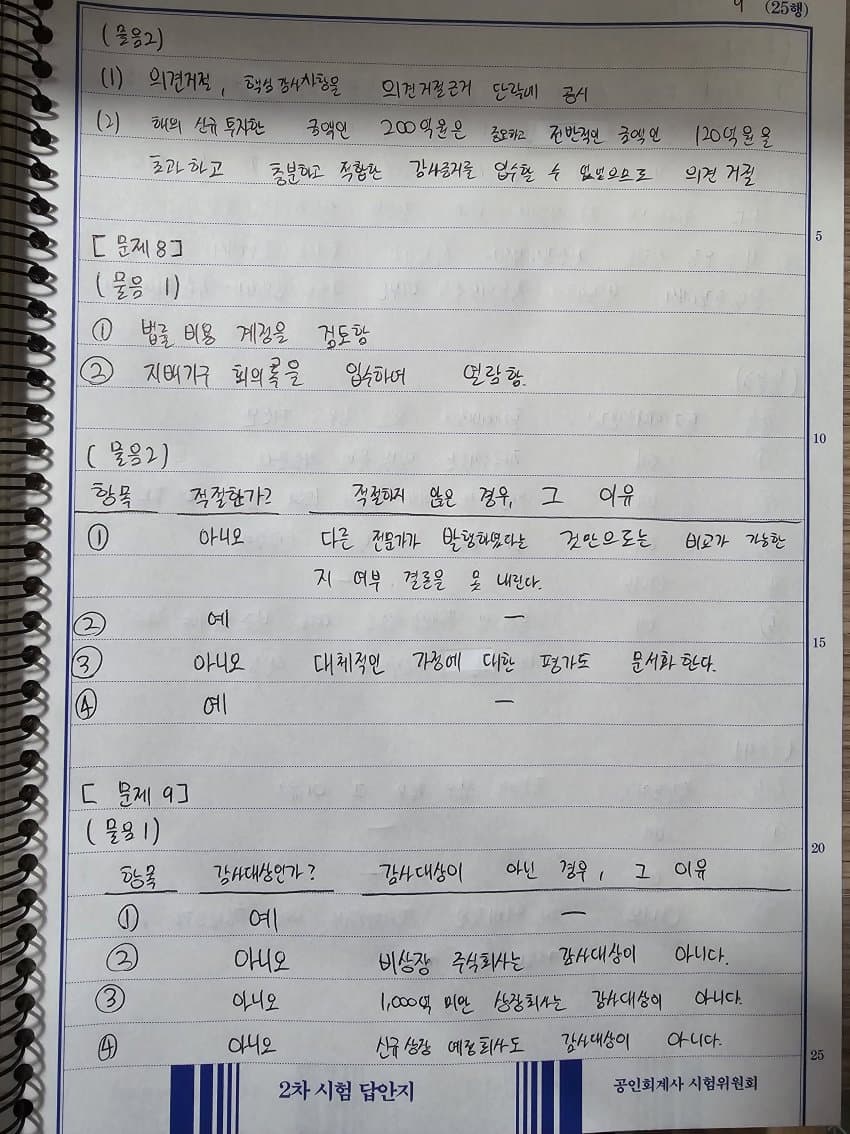 9 (25행)
(물음2)
(1) 의견거절, 핵심감사사항을 의견거절근거 단락에 공시
(2) 해외 신규 투자한 금액인 200억원은 중요하고 전반적인 금액인 120억원을
초과하고 충분하고 적합한 감사증거를 입수할 수 없었으므로 의견거절
5
[문제8]
(물음 1)
① 법률 비용 계정을 검토함
② 지배기구 회의록을 입수하여 열람함.
10
(물음2)
항목 적절한가? 적절하지 않은 경우, 그 이유
① 아니오 다른 전문가가 발행하였다는 것만으로는 비교가 가능한
지 여부 결론을 못 내린다.
② 예 —
15
③ 아니오 대체적인 가정에 대한 평가도 문서화 한다.
④ 예 —
[문제 9]
(물음1)
20
항목 감사대상인가? 감사대상이 아닌 경우, 그 이유
① 예 —
② 아니오 비상장 주식회사는 감사대상이 아니다.
③ 아니오 1,000억 미만 상장회사는 감사대상이 아니다.
④ 아니오 신규상장 예정회사도 감사대상이 아니다.
25
2차 시험 답안지 공인회계사 시험위원회